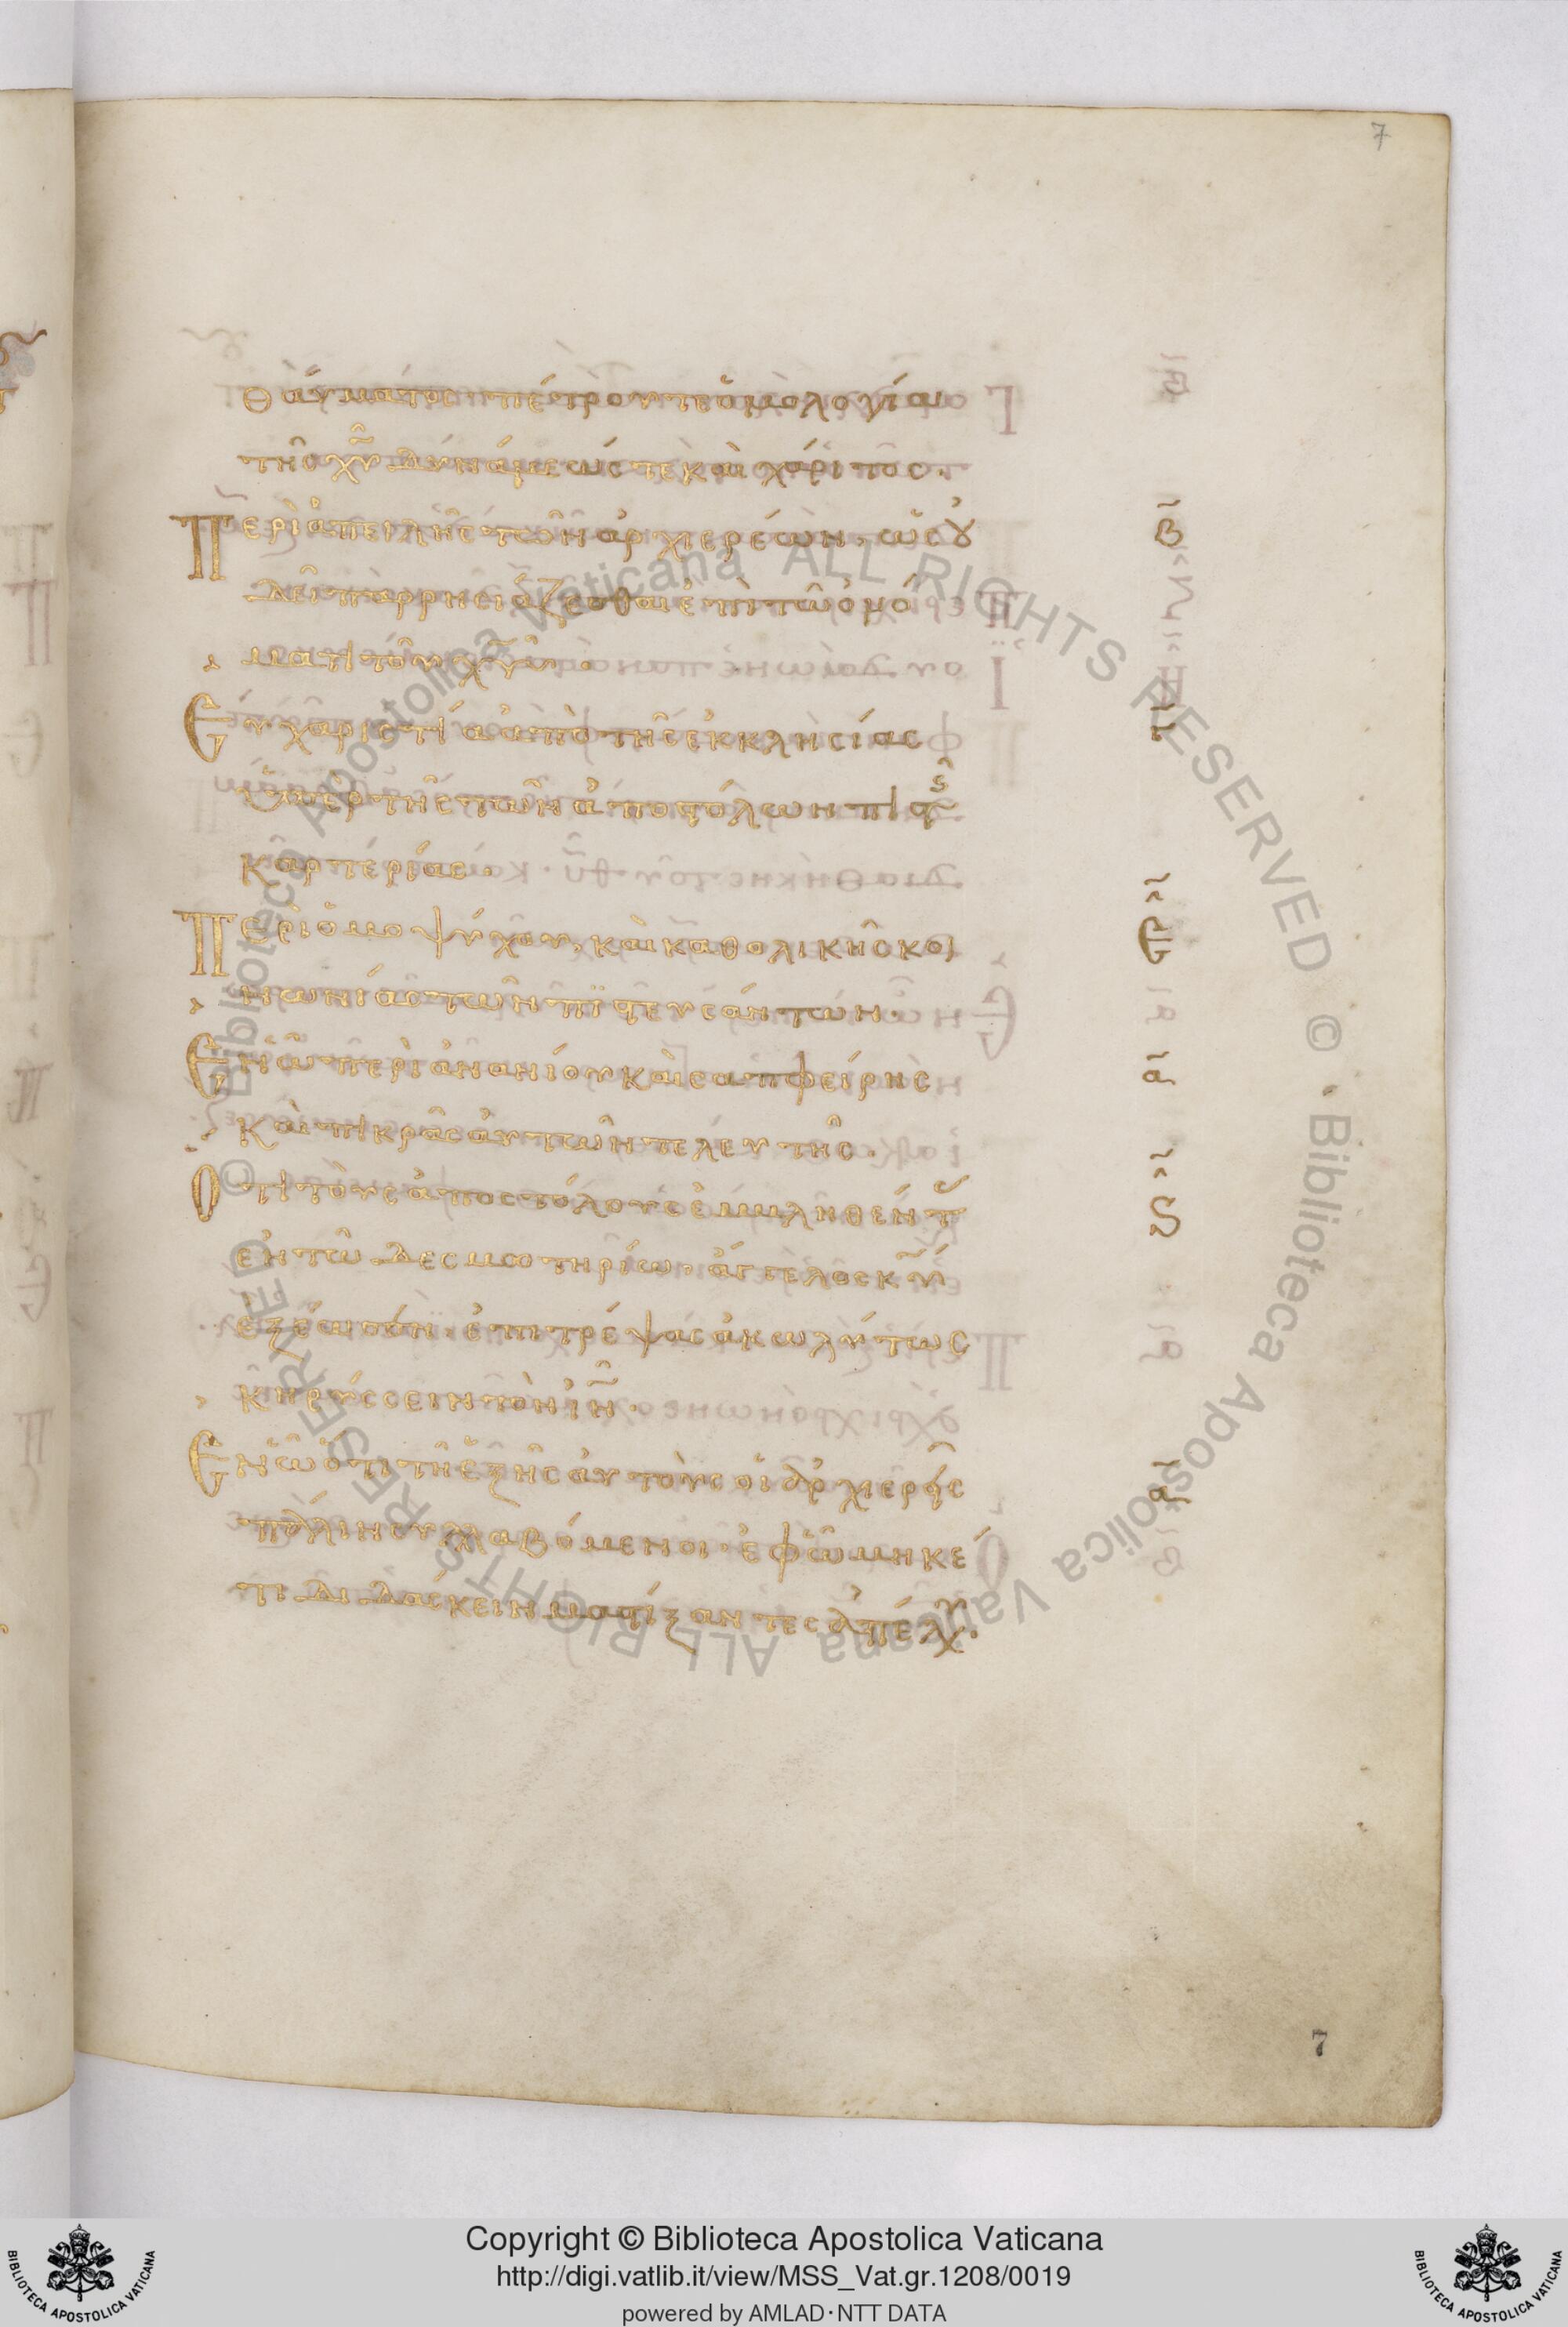 7
θαύματος πέτρου τε ὁμολογία
τῆς χῦ δυνάμεώς τε καὶ χάριτος.
Περὶ ἀπειλῆς τῶν ἀρχιερέων, ὡς οὐ β
δεῖ παρρησιάζεσθαι ἐπὶ τῶ ὀνό
ματι τοῦ χῦ.
Εὐχαριστία ἀπὸ τῆς ἐκκλησίας
ὑπὲρ τῆς τῶν ἀποστόλων πιστῆς
καρτερίας.
Περὶ ὁμοψύχου, καὶ καθολικῆς κοι
νωνίας τῶν πϊστευσάντων.
Ἐν ὧ περὶ ἀνανίου καὶ σαπφείρης α
καὶ πικρᾶς αὐτῶν τελευτῆς.
Ὅτι τοὺς ἀποστόλους ἐμβληθέντ
ἐν τῶ δεσμωτηρίω, ἄγγελος κῦ
ἐξέωσεν, ἐπιτρέψας ἀκωλύτως
κηρύσσειν τὸν ἰν.
Ἐν ὧ ὅτι τῆ ἑξῆς αὐτοὺς οἱ ἀρχιερεῖς α
πάλιν συλλαβόμενοι, ἐφ' ὧ μηκέ
τι διδάσκειν μαστίξαντες ἀπέλυ.
7
© Biblioteca Apostolica Vaticana ALL RIGHTS RESERVED © Biblioteca Apostolica Vaticana ALL RIGHTS RESERVED
Copyright © Biblioteca Apostolica Vaticana
http://digi.vatlib.it/view/MSS_Vat.gr.1208/0019
powered by AMLAD·NTT DATA
BIBLIOTECA APOSTOLICA VATICANA
BIBLIOTECA APOSTOLICA VATICANA